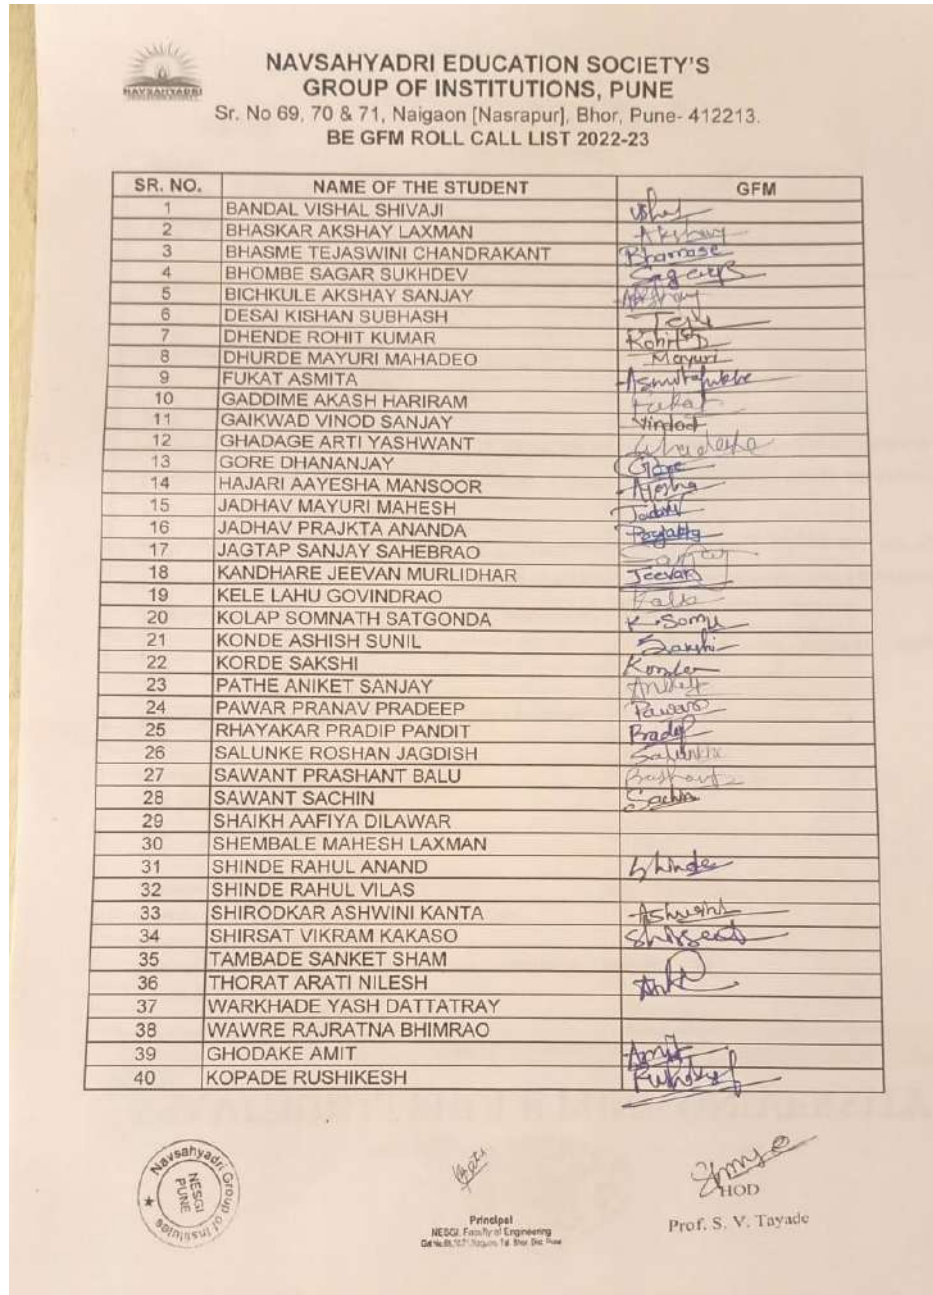 NAVSAHYADRI
NAVSAHYADRI EDUCATION SOCIETY'S
GROUP OF INSTITUTIONS, PUNE
Sr. No 69, 70 & 71, Naigaon [Nasrapur], Bhor, Pune- 412213.
BE GFM ROLL CALL LIST 2022-23
SR. NO. NAME OF THE STUDENT GFM
1 BANDAL VISHAL SHIVAJI
2 BHASKAR AKSHAY LAXMAN Akshay
3 BHASME TEJASWINI CHANDRAKANT
4 BHOMBE SAGAR SUKHDEV
5 BICHKULE AKSHAY SANJAY
6 DESAI KISHAN SUBHASH
7 DHENDE ROHIT KUMAR
8 DHURDE MAYURI MAHADEO Mayuri
9 FUKAT ASMITA
10 GADDIME AKASH HARIRAM
11 GAIKWAD VINOD SANJAY
12 GHADAGE ARTI YASHWANT
13 GORE DHANANJAY Gore
14 HAJARI AAYESHA MANSOOR
15 JADHAV MAYURI MAHESH
16 JADHAV PRAJKTA ANANDA
17 JAGTAP SANJAY SAHEBRAO
18 KANDHARE JEEVAN MURLIDHAR Jeevan
19 KELE LAHU GOVINDRAO
20 KOLAP SOMNATH SATGONDA K. Somu
21 KONDE ASHISH SUNIL Sakshi
22 KORDE SAKSHI
23 PATHE ANIKET SANJAY
24 PAWAR PRANAV PRADEEP
25 RHAYAKAR PRADIP PANDIT
26 SALUNKE ROSHAN JAGDISH
27 SAWANT PRASHANT BALU
28 SAWANT SACHIN Sachin
29 SHAIKH AAFIYA DILAWAR
30 SHEMBALE MAHESH LAXMAN
31 SHINDE RAHUL ANAND Shinde
32 SHINDE RAHUL VILAS
33 SHIRODKAR ASHWINI KANTA Ashwini
34 SHIRSAT VIKRAM KAKASO
35 TAMBADE SANKET SHAM
36 THORAT ARATI NILESH
37 WARKHADE YASH DATTATRAY
38 WAWRE RAJRATNA BHIMRAO
39 GHODAKE AMIT Amit
40 KOPADE RUSHIKESH
Navsahyadri Group of Institutes
NESGI
PUNE
Principal
NESGI, Faculty of Engineering
HOD
Prof. S. V. Tayade